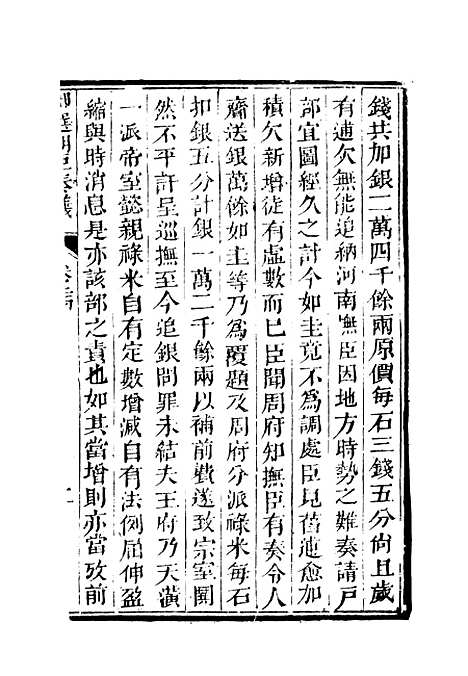 錢共加銀二萬四千餘兩原價每石三錢五分尚且歲
有逋欠無能追納河南撫臣因地方時勢之難奏請戶
部宜圖經久之計今如圭竟不為調處臣見舊逋愈加
積欠新增徒有虛數而已臣聞周府知撫臣有奏令人
齎送銀萬餘如圭等乃為覆題及周府分派祿米每石
扣銀五分計銀一萬二千餘兩以補前費遂致宗室闐
然不平訐呈巡撫至今追銀問罪未結夫王府乃天潢
一派帝室懿親祿米自有定數增減自有法例屈伸盈
縮與時消息是亦該部之責也如其當增則亦當攷前
奏議